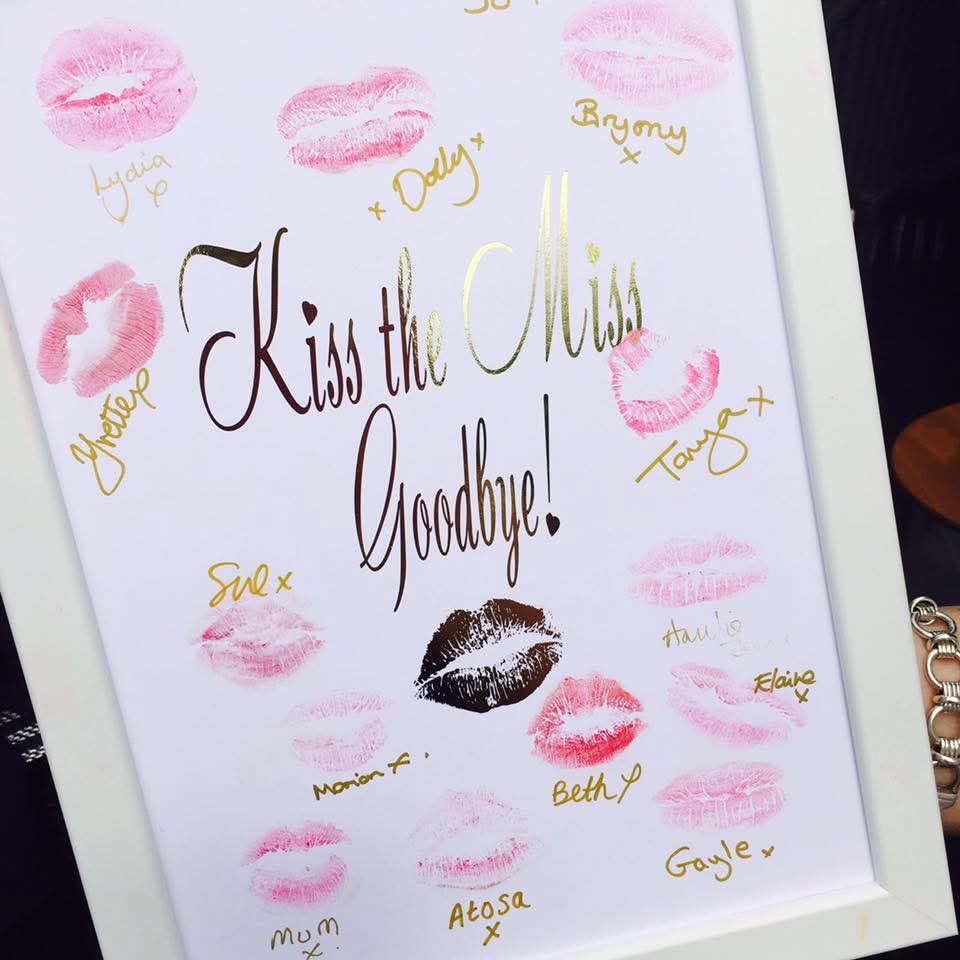 Lydia x
x Dolly x
Bryony
x
Kiss the Miss
Goodbye!
Yvette x
Tanya x
Sue x
Elaine
x
Marion x
Beth x
Gayle x
Atosa
x
Mum
x